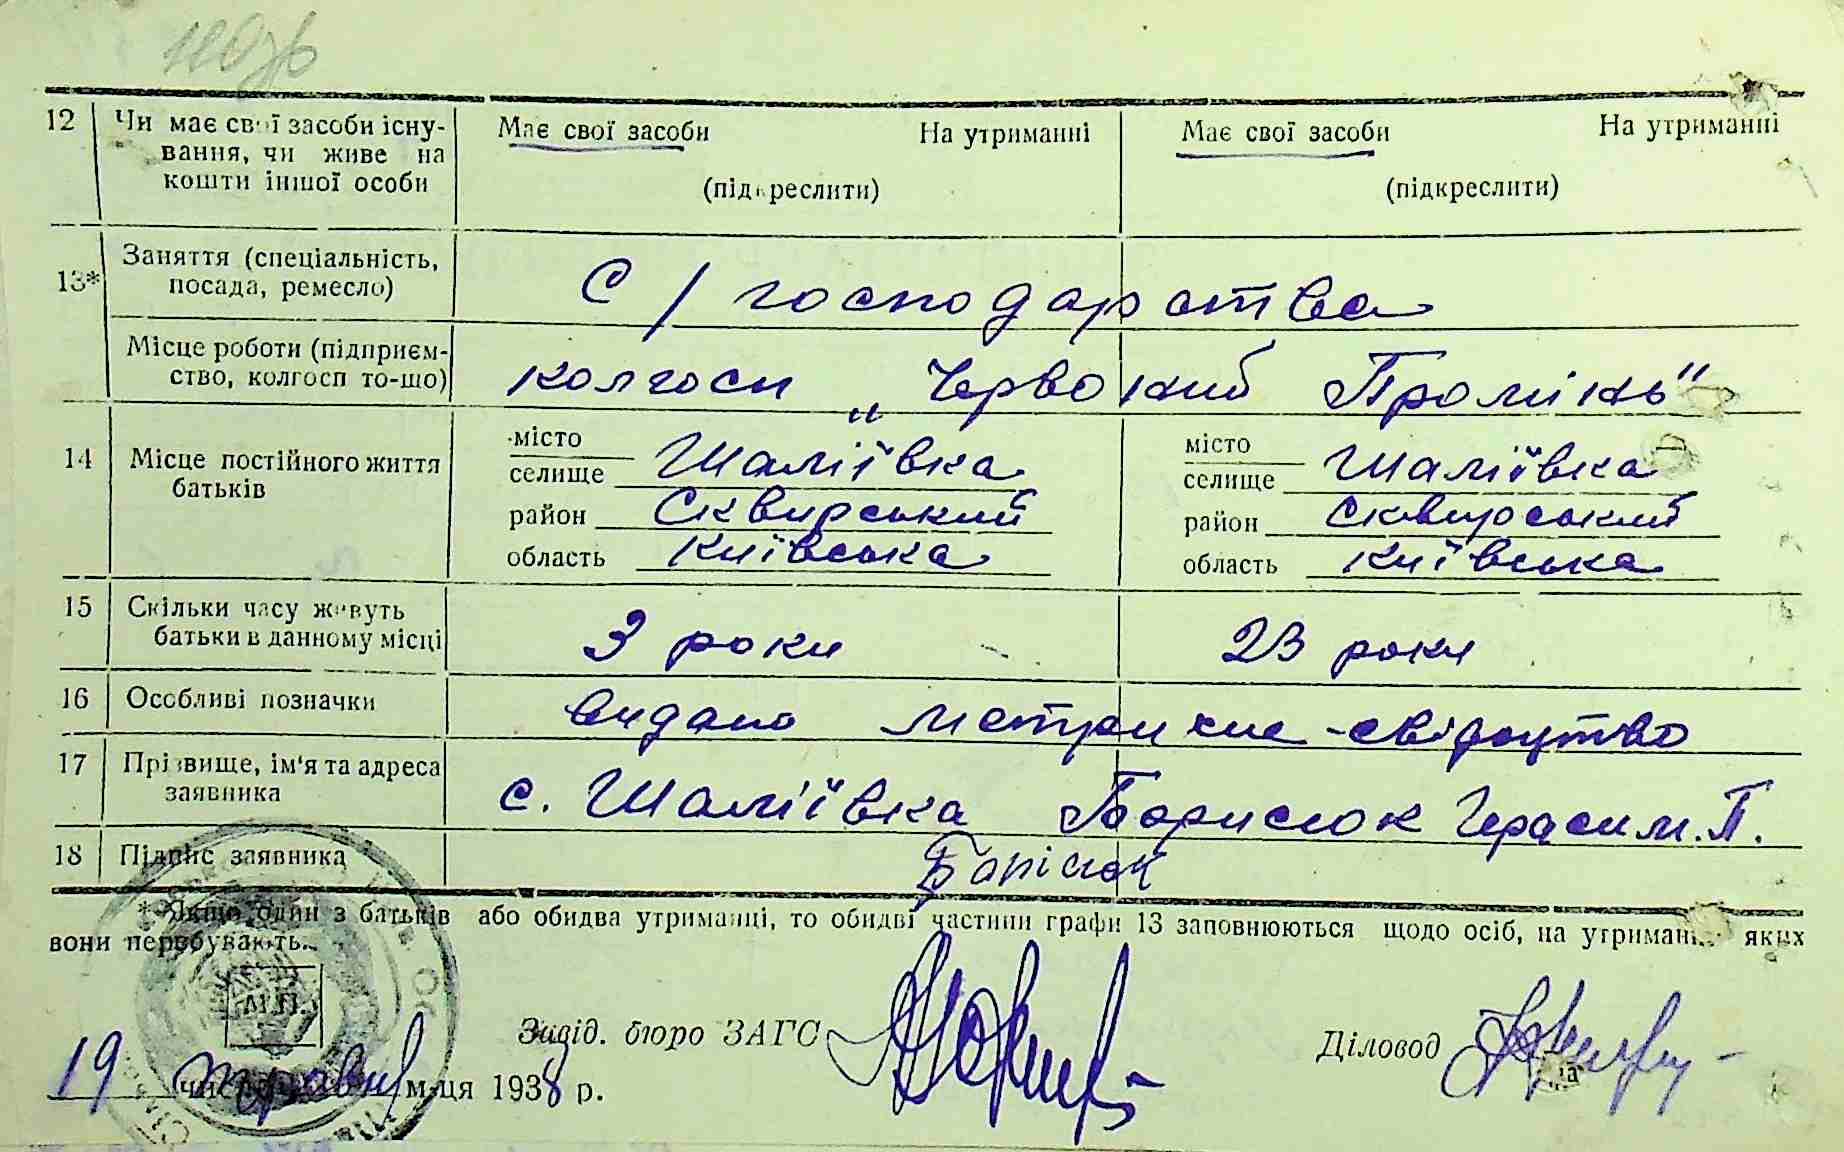 12 Чи має свої засоби існу-
вання, чи живе на
кошти іншої особи
Має свої засоби На утриманні
(підкреслити)
Має свої засоби На утриманні
(підкреслити)
13* Заняття (спеціальність,
посада, ремесло)
С/господарства
Місце роботи (підприєм-
ство, колгосп то-що)
колгосп „Червоний Промінь"
14 Місце постійного життя
батьків
місто
селище Шаліївка
район Сквирський
область Київська
місто
селище Шаліївка
район Сквирський
область Київська
15 Скільки часу живуть
батьки в данному місці
3 роки
23 роки
16 Особливі позначки
видано метричне-свідоцтво
17 Прізвище, ім'я та адреса
заявника
с. Шаліївка Борисюк Герасим. П.
18 Підпис заявника
Борісюк
* Якщо один з батьків або обидва утриманні, то обидві частини графи 13 заповнюються щодо осіб, на утриманні яких
вони перебувають.
М.П.
Завід. бюро ЗАГС
Діловод
19 травня м-ця 1938 р.